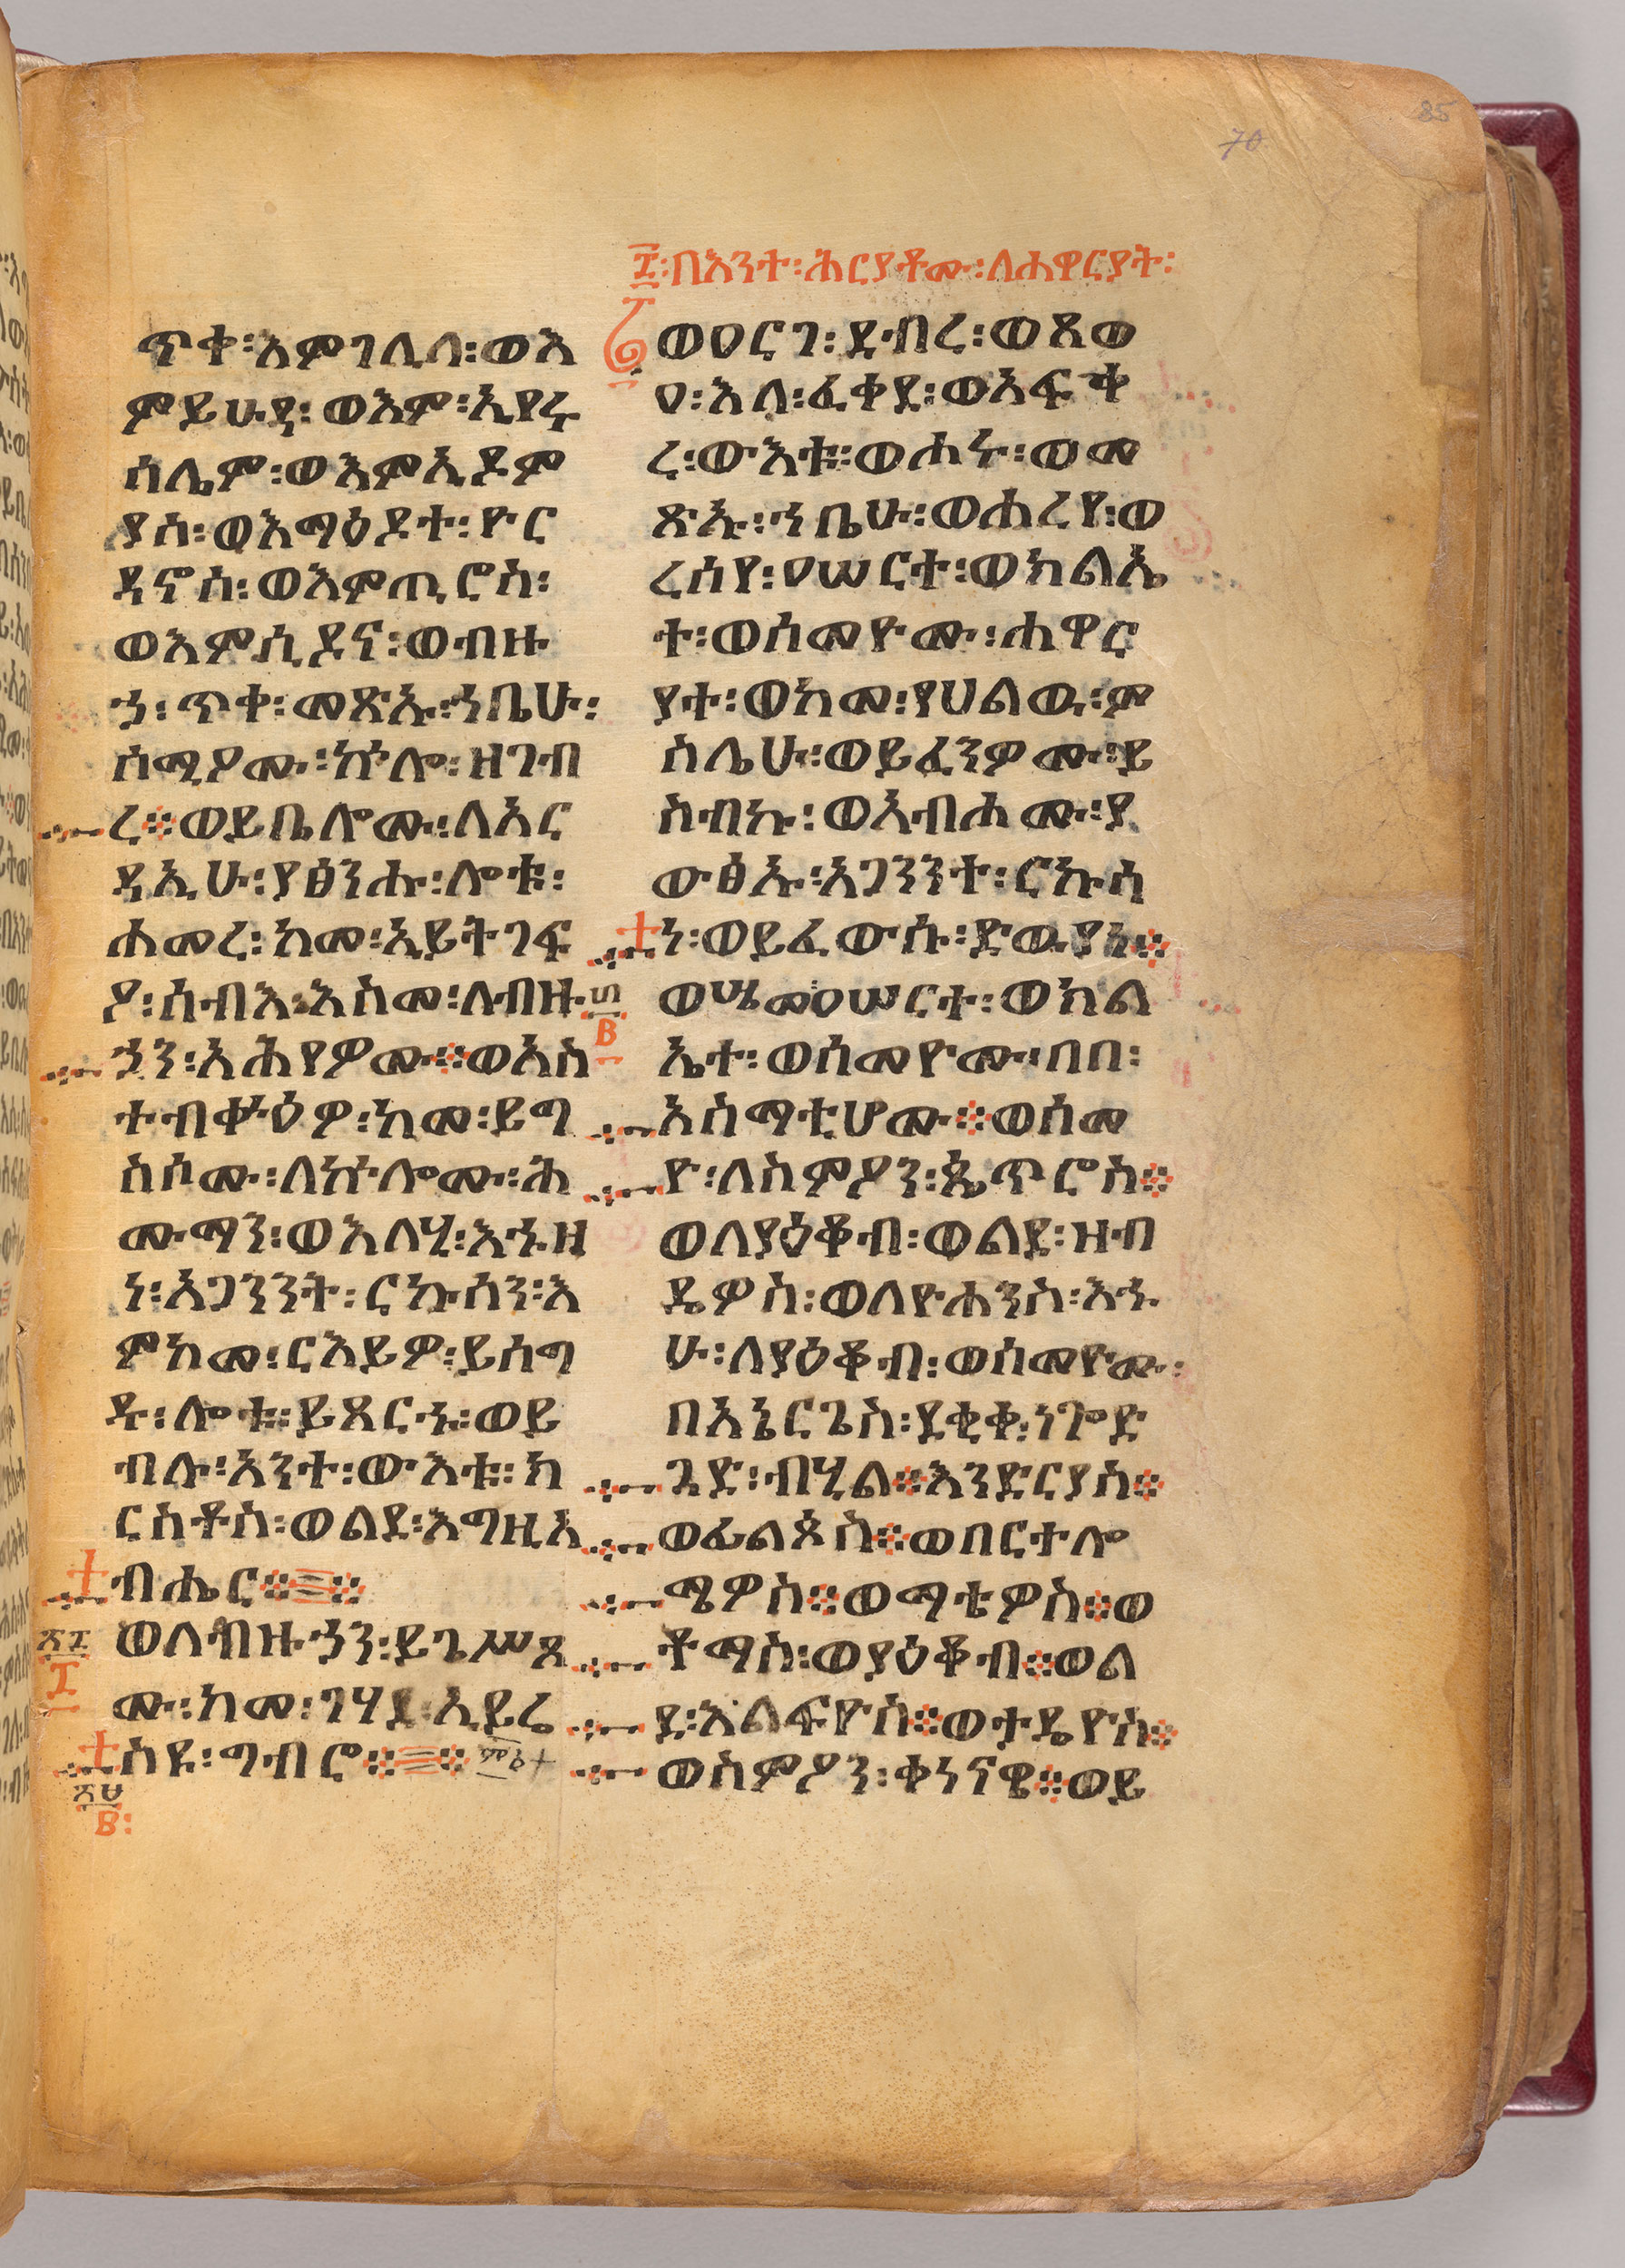 85
70
፲፡በእንተ፡ሕርያቶሙ፡ለሐዋርያት፡
ጥቀ፡እምገሊላ፡ወእ
ምይሁዳ፡ወእም፡ኢየሩ
ሰሌም፡ወእምኢዶም
ያስ፡ወእማዕዶተ፡ዮር
ዳኖስ፡ወእምጢሮስ፡
ወእምሲዶና፡ወብዙ
ኃ፡ጥቀ፡መጽኡ፡ኀቤሁ፡
ሰሚዖሙ፡ኵሎ፡ዘገብ
ረ፨ወይቤሎሙ፡ለአር
ዳኢሁ፡ያፅንሑ፡ሎቱ፡
ሐመረ፡ከመ፡ኢይትገፍ
ዖ፡ሰብእ፡እስመ፡ለብዙ
ኃን፡አሕየዎሙ፨ወአስ
ተብቍዕዎ፡ከመ፡ይግ
ስሶሙ፡ለኵሎሙ፡ሕ
ሙማን፡ወእለሂ፡እኁዘ
ነ፡አጋንንት፡ርኩሰን፡እ
ምከመ፡ርእይዎ፡ይሰግ
ዱ፡ሎቱ፡ይጸርኁ፡ወይ
ብሉ፡አንተ፡ውእቱ፡ክ
ርስቶስ፡ወልደ፡እግዚአ
ብሔር፨፨
ወለብዙኃን፡ይጌሥጾ
ሙ፡ከመ፡ገሃደ፡ኢይሬ
ስዩ፡ግብሮ፨፨
ወዐርገ፡ደብረ፡ወጸው
ዐ፡እለ፡ፈቀደ፡ወአፍቀ
ረ፡ውእቱ፡ወሐሩ፡ወመ
ጽኡ፡ኀቤሁ፡ወሐረየ፡ወ
ረሰየ፡ዐሠርተ፡ወክልኤ
ተ፡ወሰመዮሙ፡ሐዋር
ያተ፡ወከመ፡የሀልዉ፡ም
ስሌሁ፡ወይፈንዎሙ፡ይ
ስብኩ፡ወአብሐሙ፡ያ
ውፅኡ፡አጋንንተ፡ርኩሳ
ነ፡ወይፈውሱ፡ድዉያነ፨
ወሤመ፡ዐሠርተ፡ወክል
ኤተ፡ወሰመዮሙ፡በበ፡
አስማቲሆሙ፨ወሰመ
ዮ፡ለስምዖን፡ጴጥሮስ፨
ወለያዕቆብ፡ወልደ፡ዘብ
ዴዎስ፡ወለዮሐንስ፡እኁ
ሁ፡ለያዕቆብ፡ወሰመዮሙ፡
በአኔርጌስ፡ደቂቀ፡ነጐድ
ጓድ፡ብሂል፨እንድርያስ፨
ወፊልጶስ፨ወበርተሎ
ሜዎስ፨ወማቴዎስ፨ወ
ቶማስ፡ወያዕቆብ፨ወል
ደ፡እልፍዮስ፨ወታዴዮስ፨
ወስምዖን፡ቀነናዊ፨ወይ